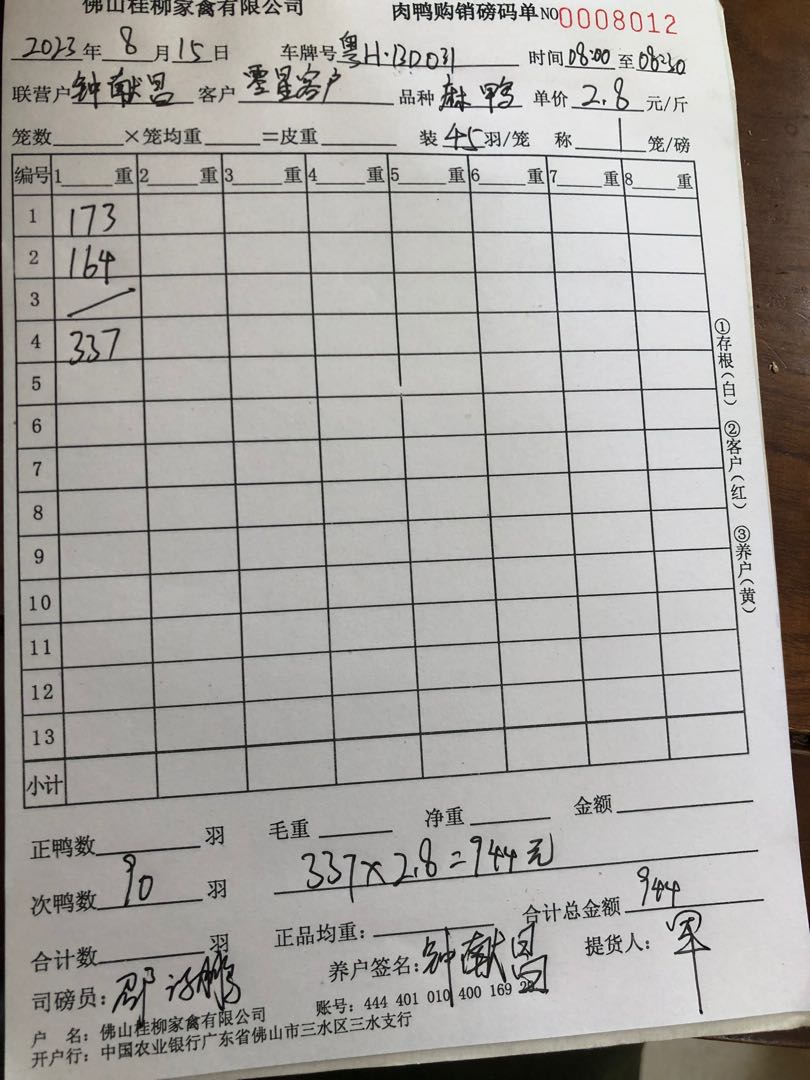 佛山桂柳家禽有限公司 肉鸭购销磅码单 NO 0008012
2023年8月15日 车牌号粤H·BD031 时间08:00至08:30
联营户钟献昌 客户零星客户 品种麻鸭 单价2.8元/斤
笼数____×笼均重____=皮重____ 装45羽/笼 称1笼/磅
编号 1____重 2____重 3____重 4____重 5____重 6____重 7____重 8____重
1 173
2 164
3 /
4 337
5
6
7
8
9
10
11
12
13
小计
正鸭数____羽 毛重____ 净重____ 金额____
次鸭数90羽 337×2.8=944元
合计数____羽 正品均重:____ 合计总金额944
司磅员: 养户签名:钟献昌 提货人:军
户 名:佛山桂柳家禽有限公司 账号:444 401 010 400 169
开户行:中国农业银行广东省佛山市三水区三水支行
①存根(白) ②客户(红) ③养户(黄)